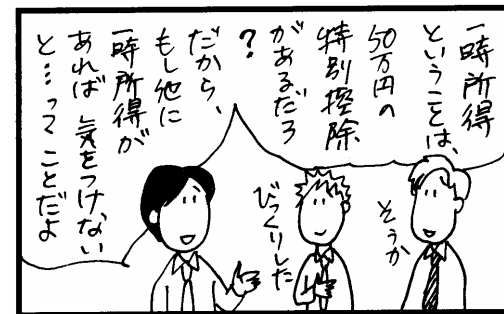 一時所得
ということは、
50万円の
特別控除
があるだろ
?
だから、
もし他に
一時所得が
あれば 気をつけない
と…ってことだよ
そうか
びっくりした